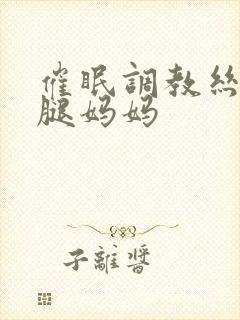 催眠調教絲
腿妈妈
子離醬